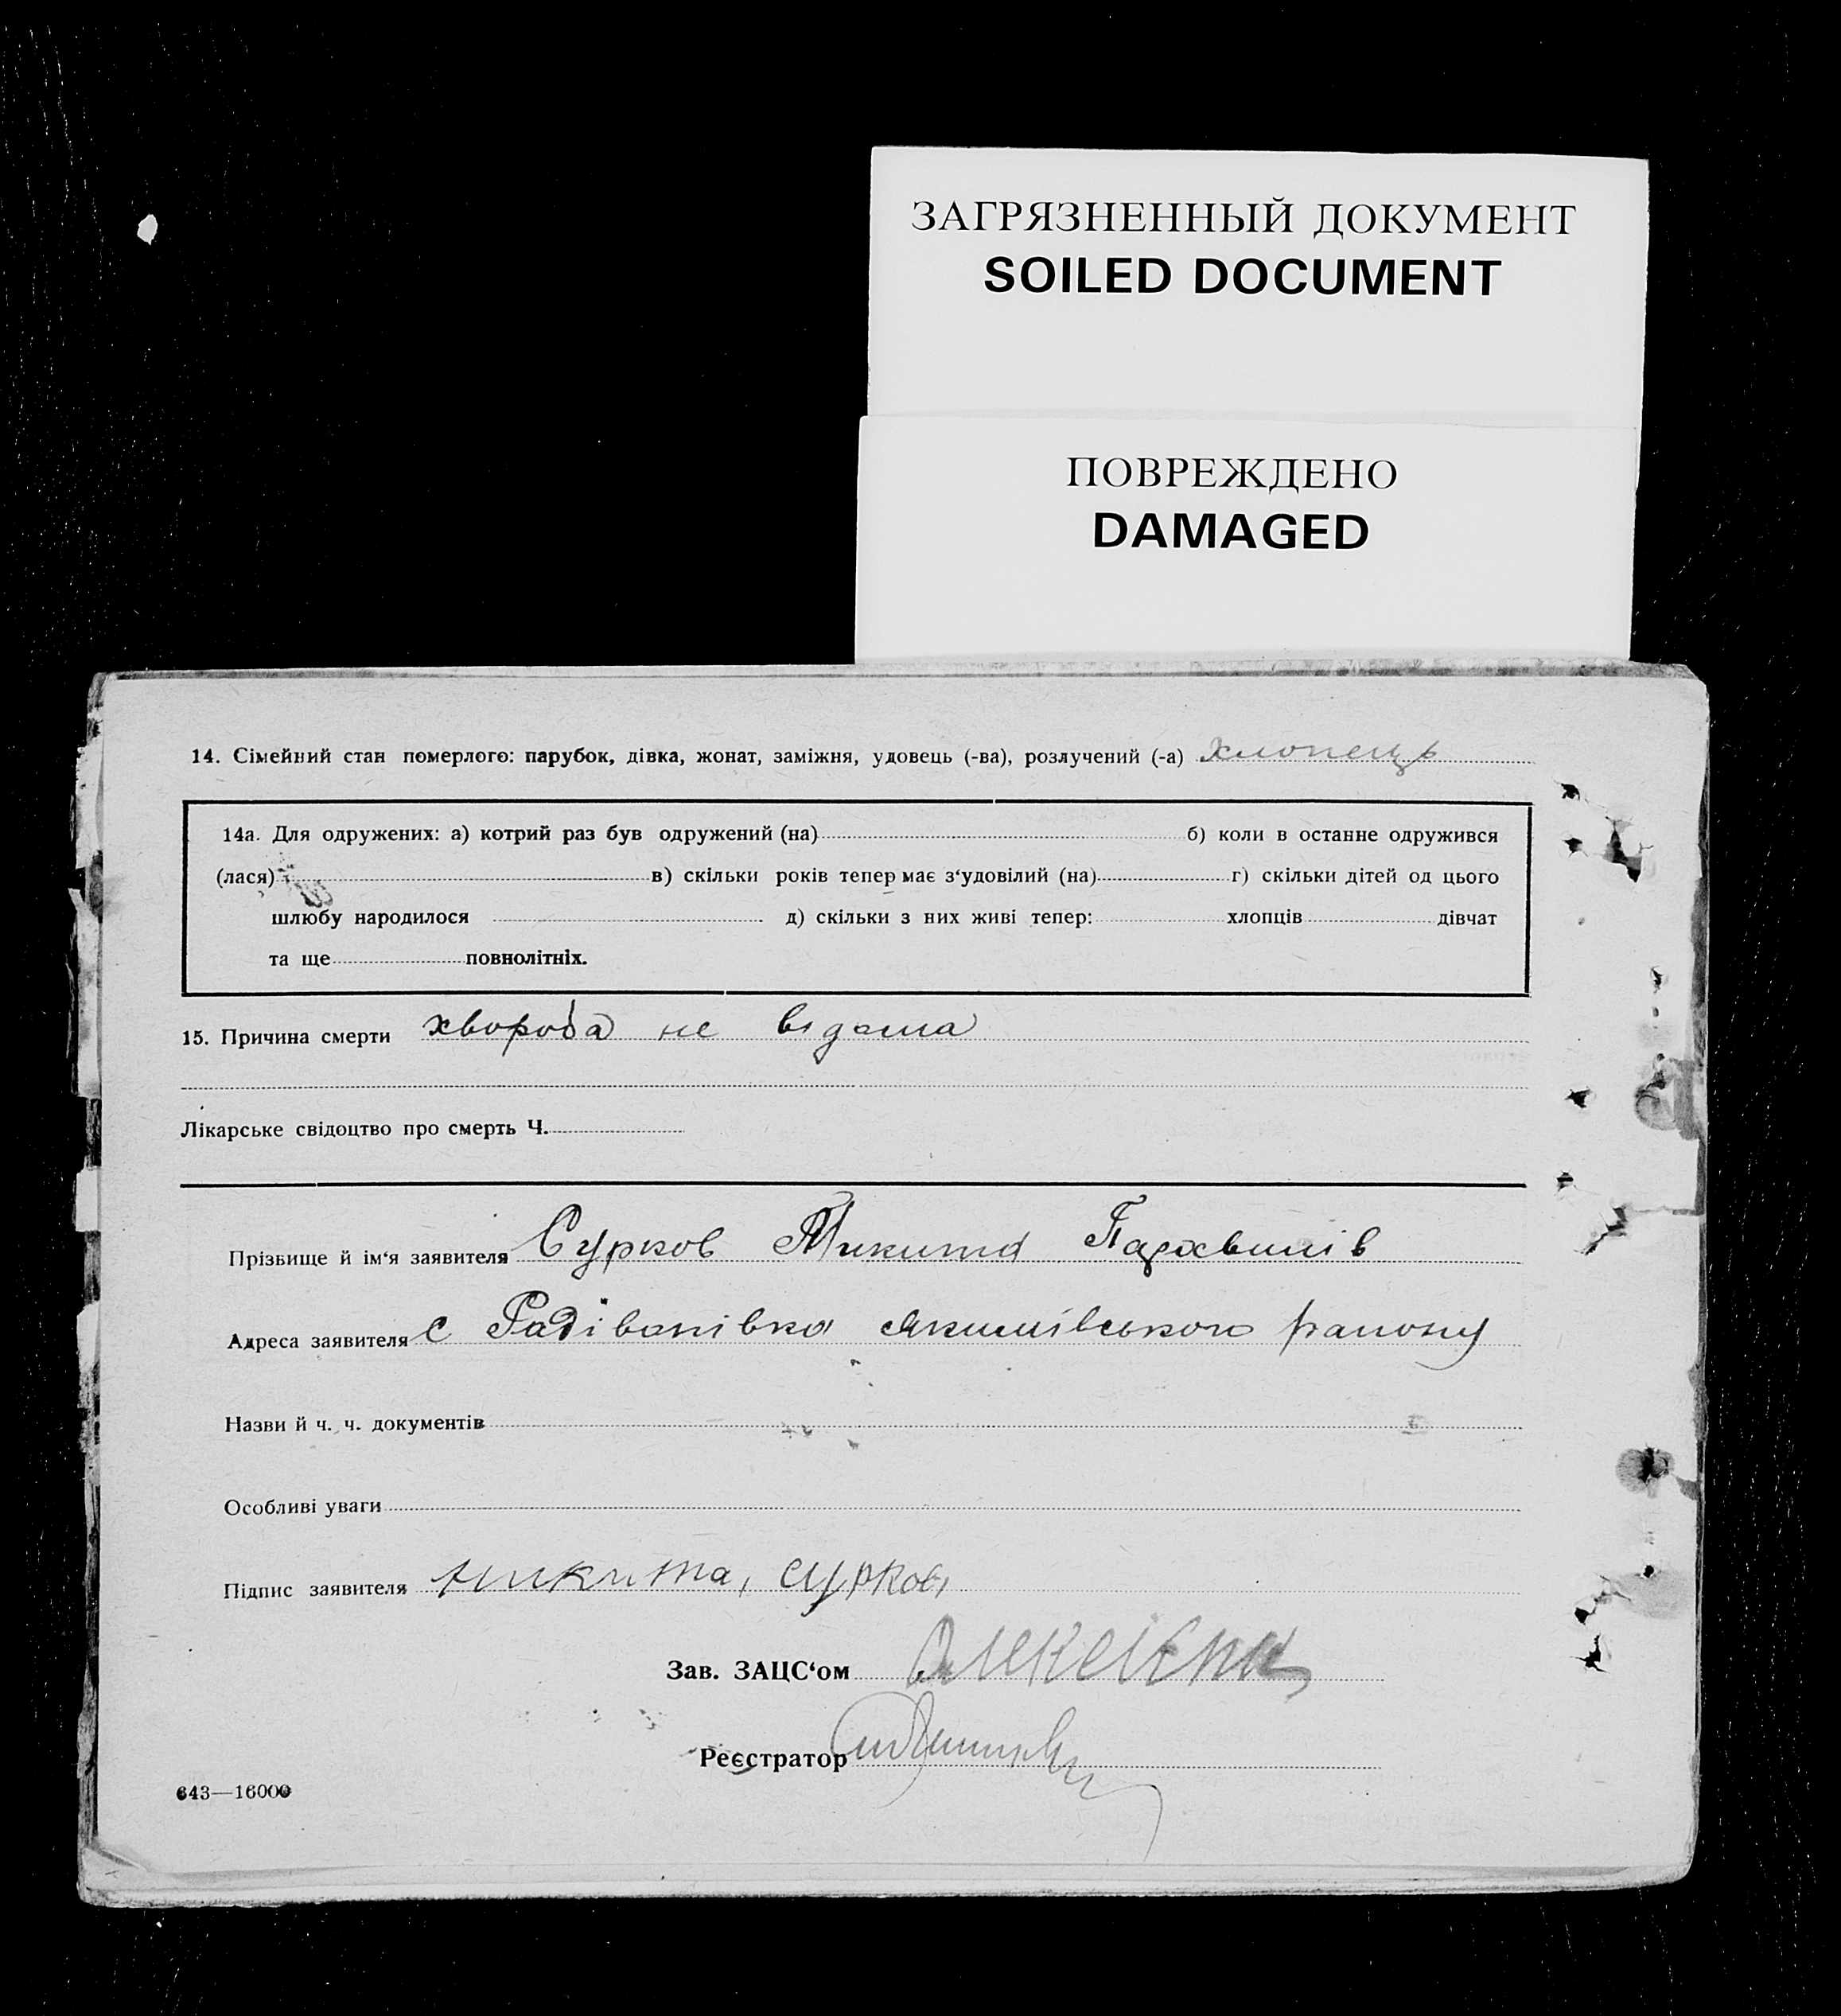 ЗАГРЯЗНЕННЫЙ ДОКУМЕНТ
SOILED DOCUMENT
ПОВРЕЖДЕНО
DAMAGED
14. Сімейний стан померлого: парубок, дівка, жонат, заміжня, удовець (-ва), розлучений (-а) хлопець
14а. Для одружених: а) котрий раз був одружений (на) б) коли в останне одружився
(лася) в) скільки років тепер має з‘удовілий (на) г) скільки дітей од цього
шлюбу народилося д) скільки з них живі тепер: хлопців дівчат
та ще повнолітніх.
15. Причина смерти хвороба не відома
Лікарське свідоцтво про смерть Ч.
Прізвище й ім‘я заявителя Сурков Микита
Адреса заявителя с Радівонівка Якимівського району
Назви й ч. ч. документів
Особливі уваги
Підпис заявителя микита, сурков
Зав. ЗАЦС‘ом
Реєстратор
643—16000